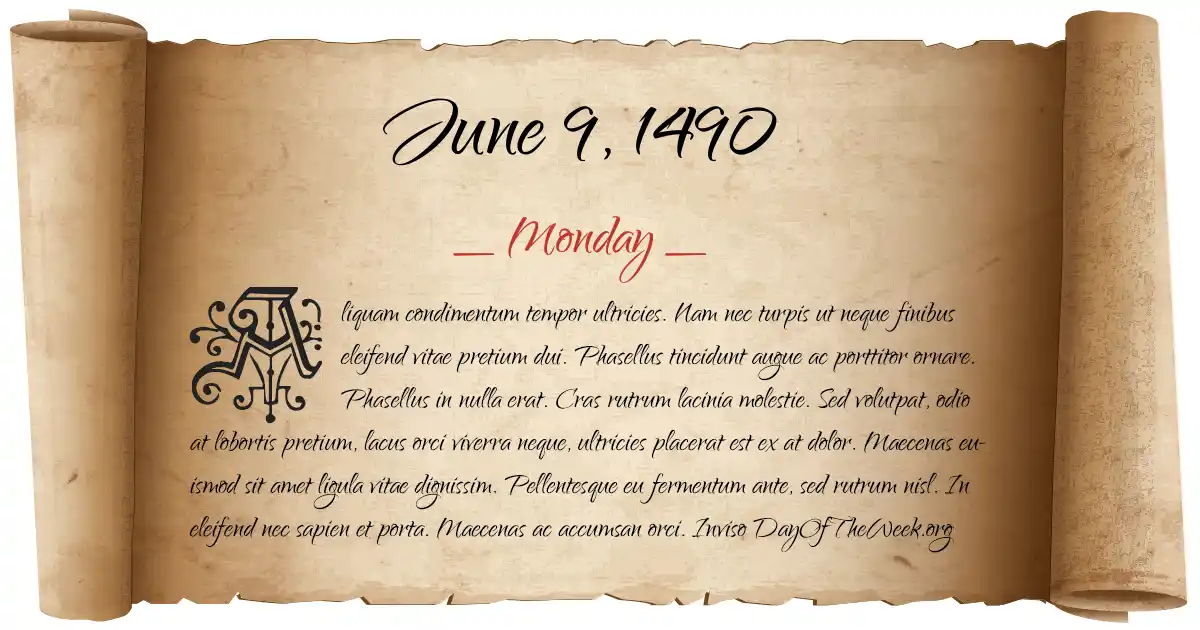 June 9, 1490
Monday
Aliquam condimentum tempor ultricies. Nam nec turpis ut neque finibus
eleifend vitae pretium dui. Phasellus tincidunt augue ac porttitor ornare.
Phasellus in nulla erat. Cras rutrum lacinia molestie. Sed volutpat, odio
at lobortis pretium, lacus orci viverra neque, ultricies placerat est ex at dolor. Maecenas eu-
ismod sit amet ligula vitae dignissim. Pellentesque eu fermentum ante, sed rutrum nisl. In
eleifend nec sapien et porta. Maecenas ac accumsan orci. Inviso DayOfTheWeek.org